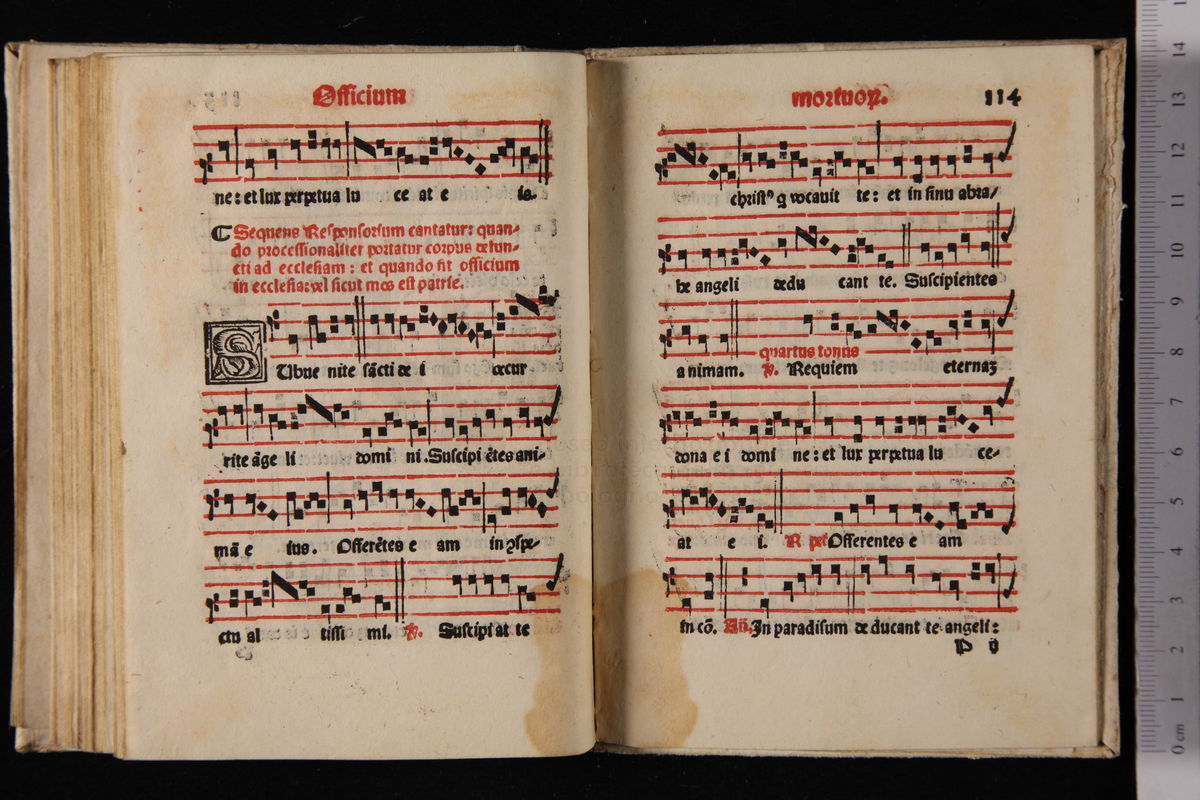 Officium
ne : et lux perpetua lu ce at e is.
Sequens Responsorium cantatur: quan-
do processionaliter portatur corpus defun-
cti ad ecclesiam : et quando fit officium
in ecclesia: vel sicut mos est patrie.
SUbue nite sācti de i occur
rite āge li domi ni. Suscipi ētes ani-
mā e ius. Offerētes e am in ꝯspe-
ctu al tissi mi. ℣. Suscipi at te
mortuoꝝ. 114
christꝰ q vocauit te : et in sinu abra/
he angeli dedu cant te. Suscipientes
quartus tonus
animam. ℣. Requiem eternaꝫ
dona e i domi ne : et lux perpetua lu ce-
at e i. R pet Offerentes e am
in cō. Añ. In paradisum de ducant te angeli :
P ij